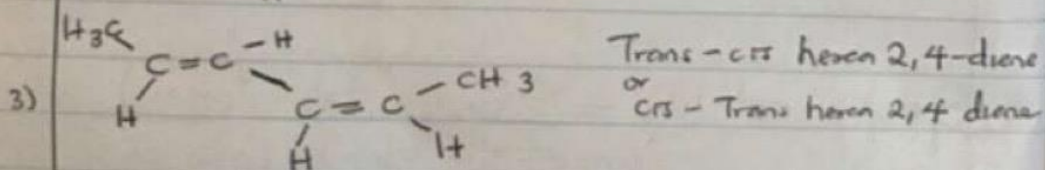 3)
H3C
C=C-H
H
C=C-CH3
H
H
Trans-cis hexen 2,4-diene
or
cis-Trans hexen 2,4 diene